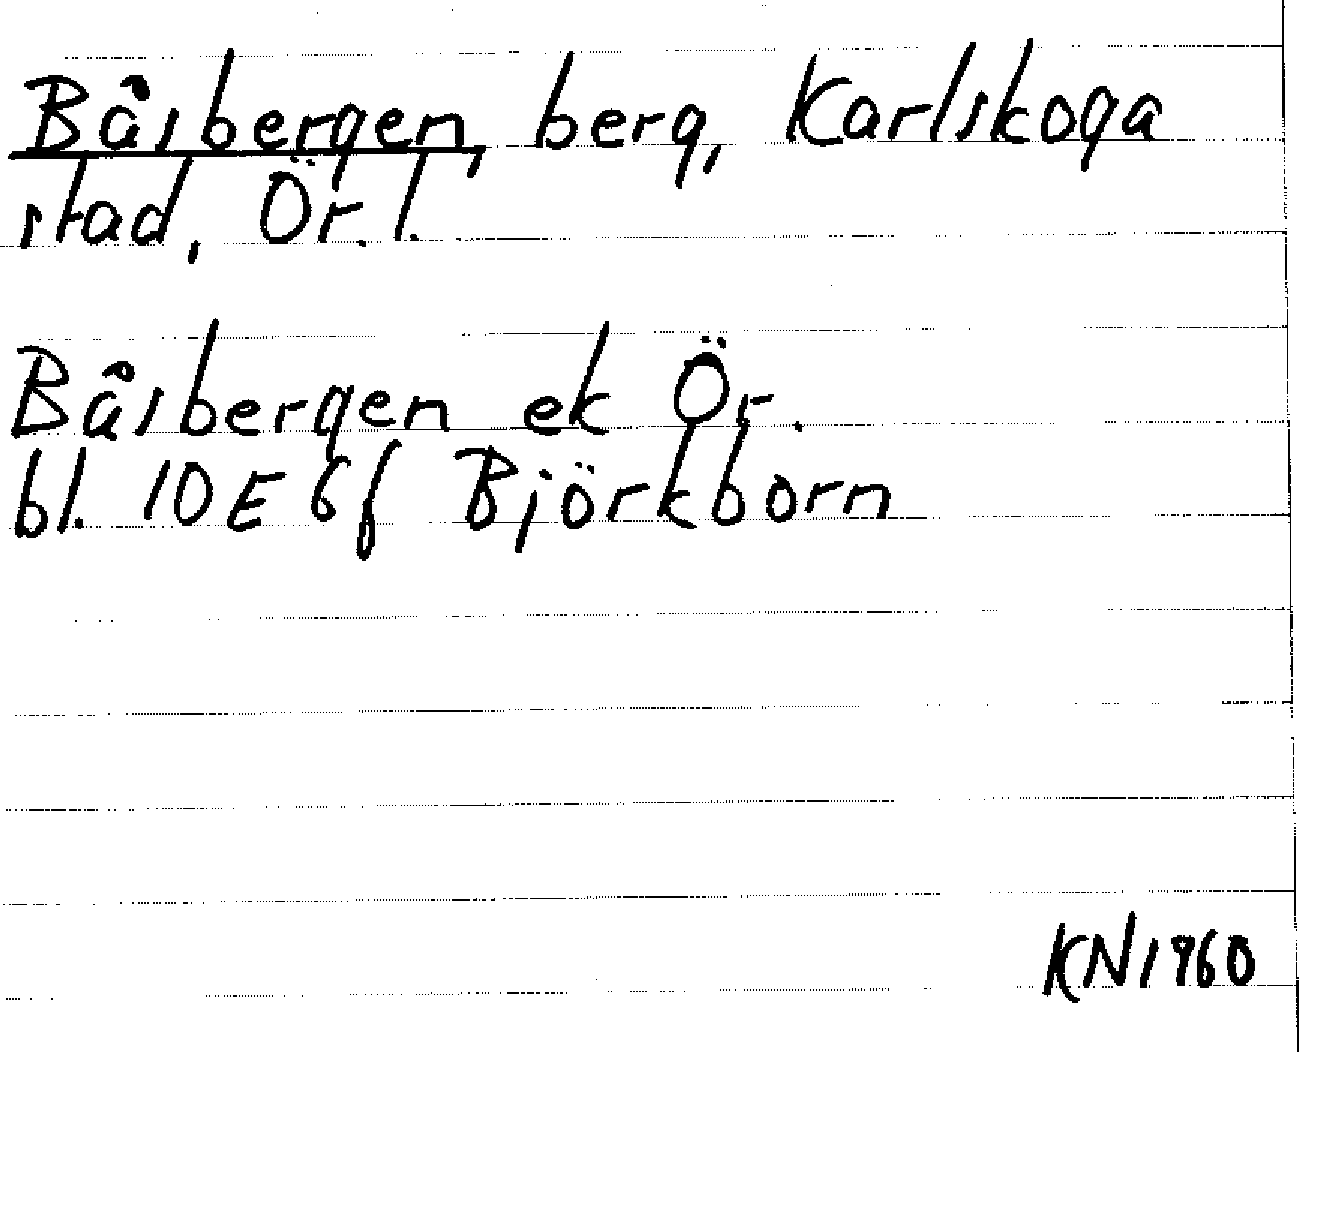 Båsbergen, berg, Karlskoga
stad, Ör. l.
Båsbergen ek Ör.
bl. 10E 6f Björkborn
KN1960